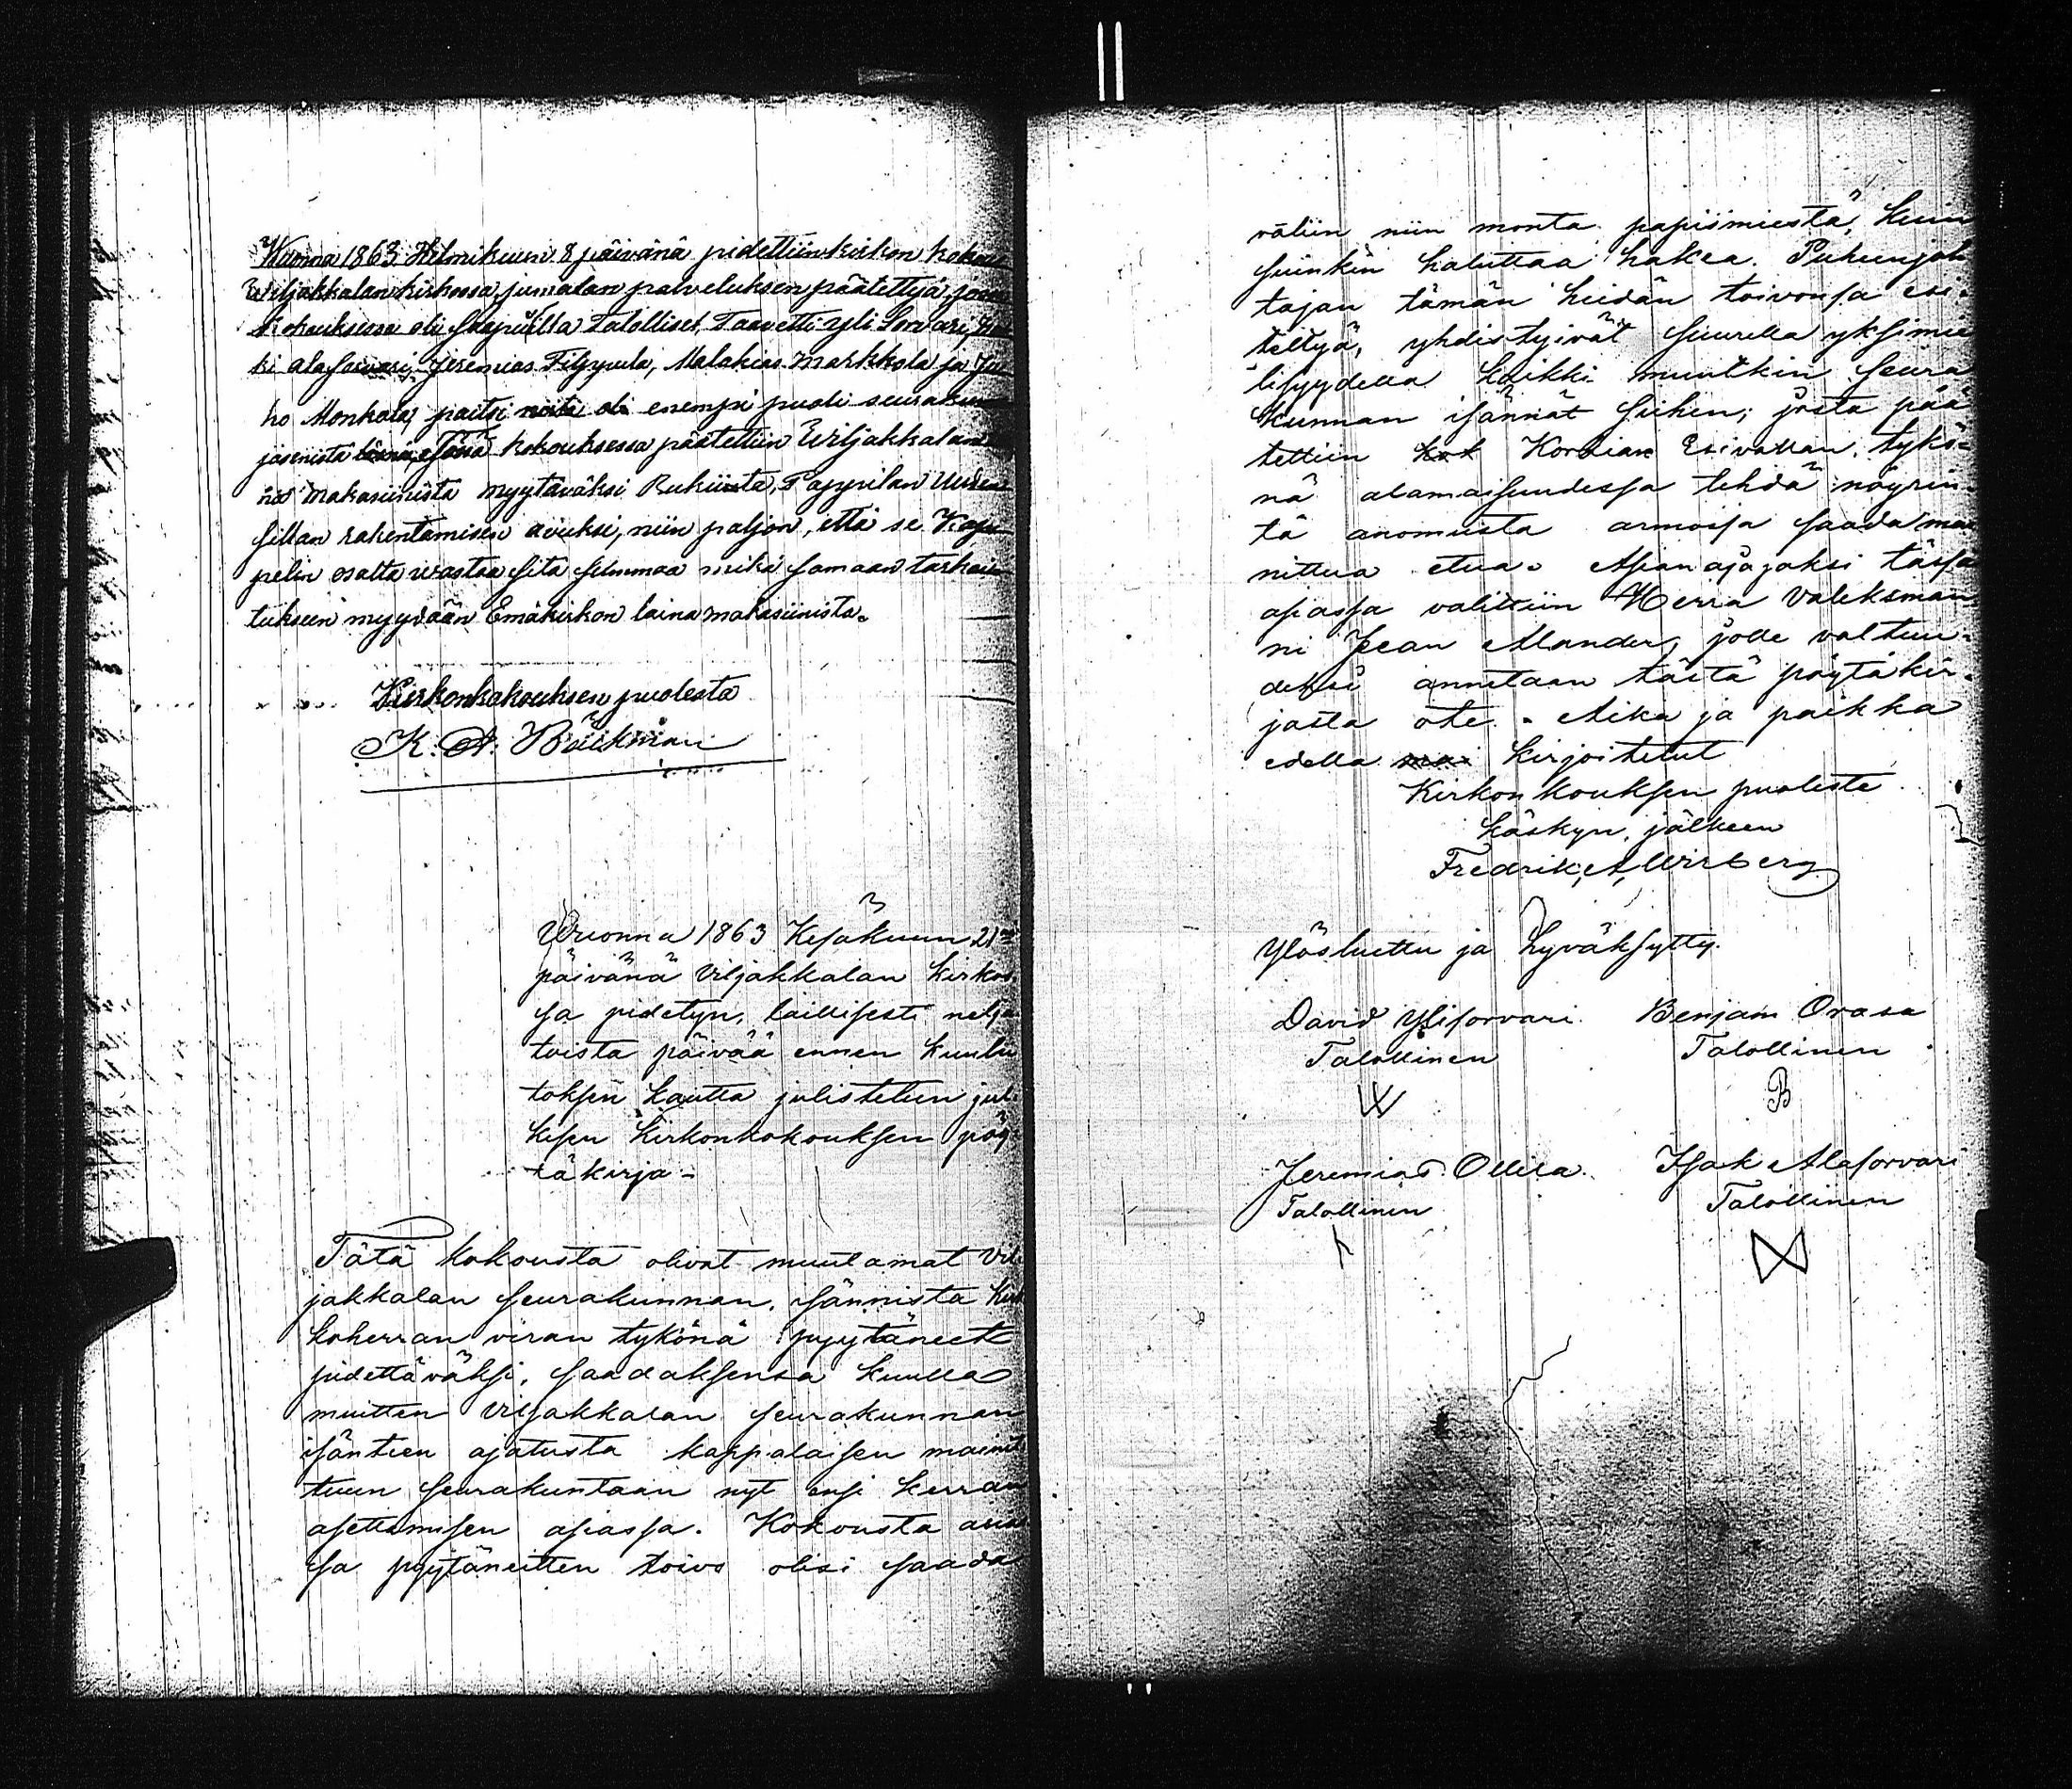 Wuonna 1863 Helmikuun 8 päivänä pidettiin kirkon kokous
Wiljakkalan kirkossa, jumalan palveluksen päätettyä, jossa
Kokouksessa oli saapuilla Talolliset, Taavetti Yli Sorvari,
ki alasorvari, Jeremias Filppula, Malakias Markkola ja Ju
ho Monkala, paitsi niitä oli enempi puoli seurakun
jäsenistä läsnä, Tässä kokouksessa päätettiin Wiljakkalan
makasiinista myytäväksi Rukiista, Pappilan Uuden
sillan rakentamisen avuksi, niin paljon, että se Kap
pelin osalta wastaa sitä summaa mikä samaan tarkoi
tukseen myydään Emäkirkon lainamakasiinista.
Kirkonkokouksen puolesta
K. A. Bäckman
Wuonna 1863 Kesäkuun 21
päivänä Viljakkalan kirkos
sa pidetyn, laillisesti neljä
toista päivää ennen kuulu
toksen kautta julistetun jul
kisen kirkonkokouksen pöy
täkirja.
Tätä kokousta olivat muutamat Vil
jakkalan seurakunnan, isännistä kirk
koherran viran tykönä pyytäneet
pidettäväksi, saadaksensa kuulla
muitten Viljakkalan seurakunnan
isäntien ajatusta kappalaisen mainit
tuun seurakuntaan nyt ensi kerran
asettamisen asiassa. Kokousta
sa pyytäneitten toivo olisi saada
väliin niin monta pappismiestä, kuin
suinkin haluttaa hakea. Puheenjoh
tajan tämän heidän toivonsa esi
teltyä, yhdistyivät suurella yksimie
lisyydellä kaikki muutkin seura
kunnan isännät siihen; josta pää
tettiin kok Korkian Esivallan, tykö-
nä alamaisuudessa tehdä nöyrin-
tä anomusta armoisa saada mai
nittua etua. Asianajajaksi tässä
asiassa valittiin Herra Valeksman
ni Jean Alander, jolle valtuu-
deksi annetaan tästä pöytäkir-
jasta ote. Aika ja paikka
edellä mai kirjoitetut
Kirkonkouksen puolesta
käskyn, jälkeen
Fredrik, A, Wirberg
Ylösluettu ja hyväksytty.
David Ylisorvari. Benjam Orasa
Talollinen Talollinen
W B
Jeremias Ollila. Isak Alasorvari
Talollinen Talollinen